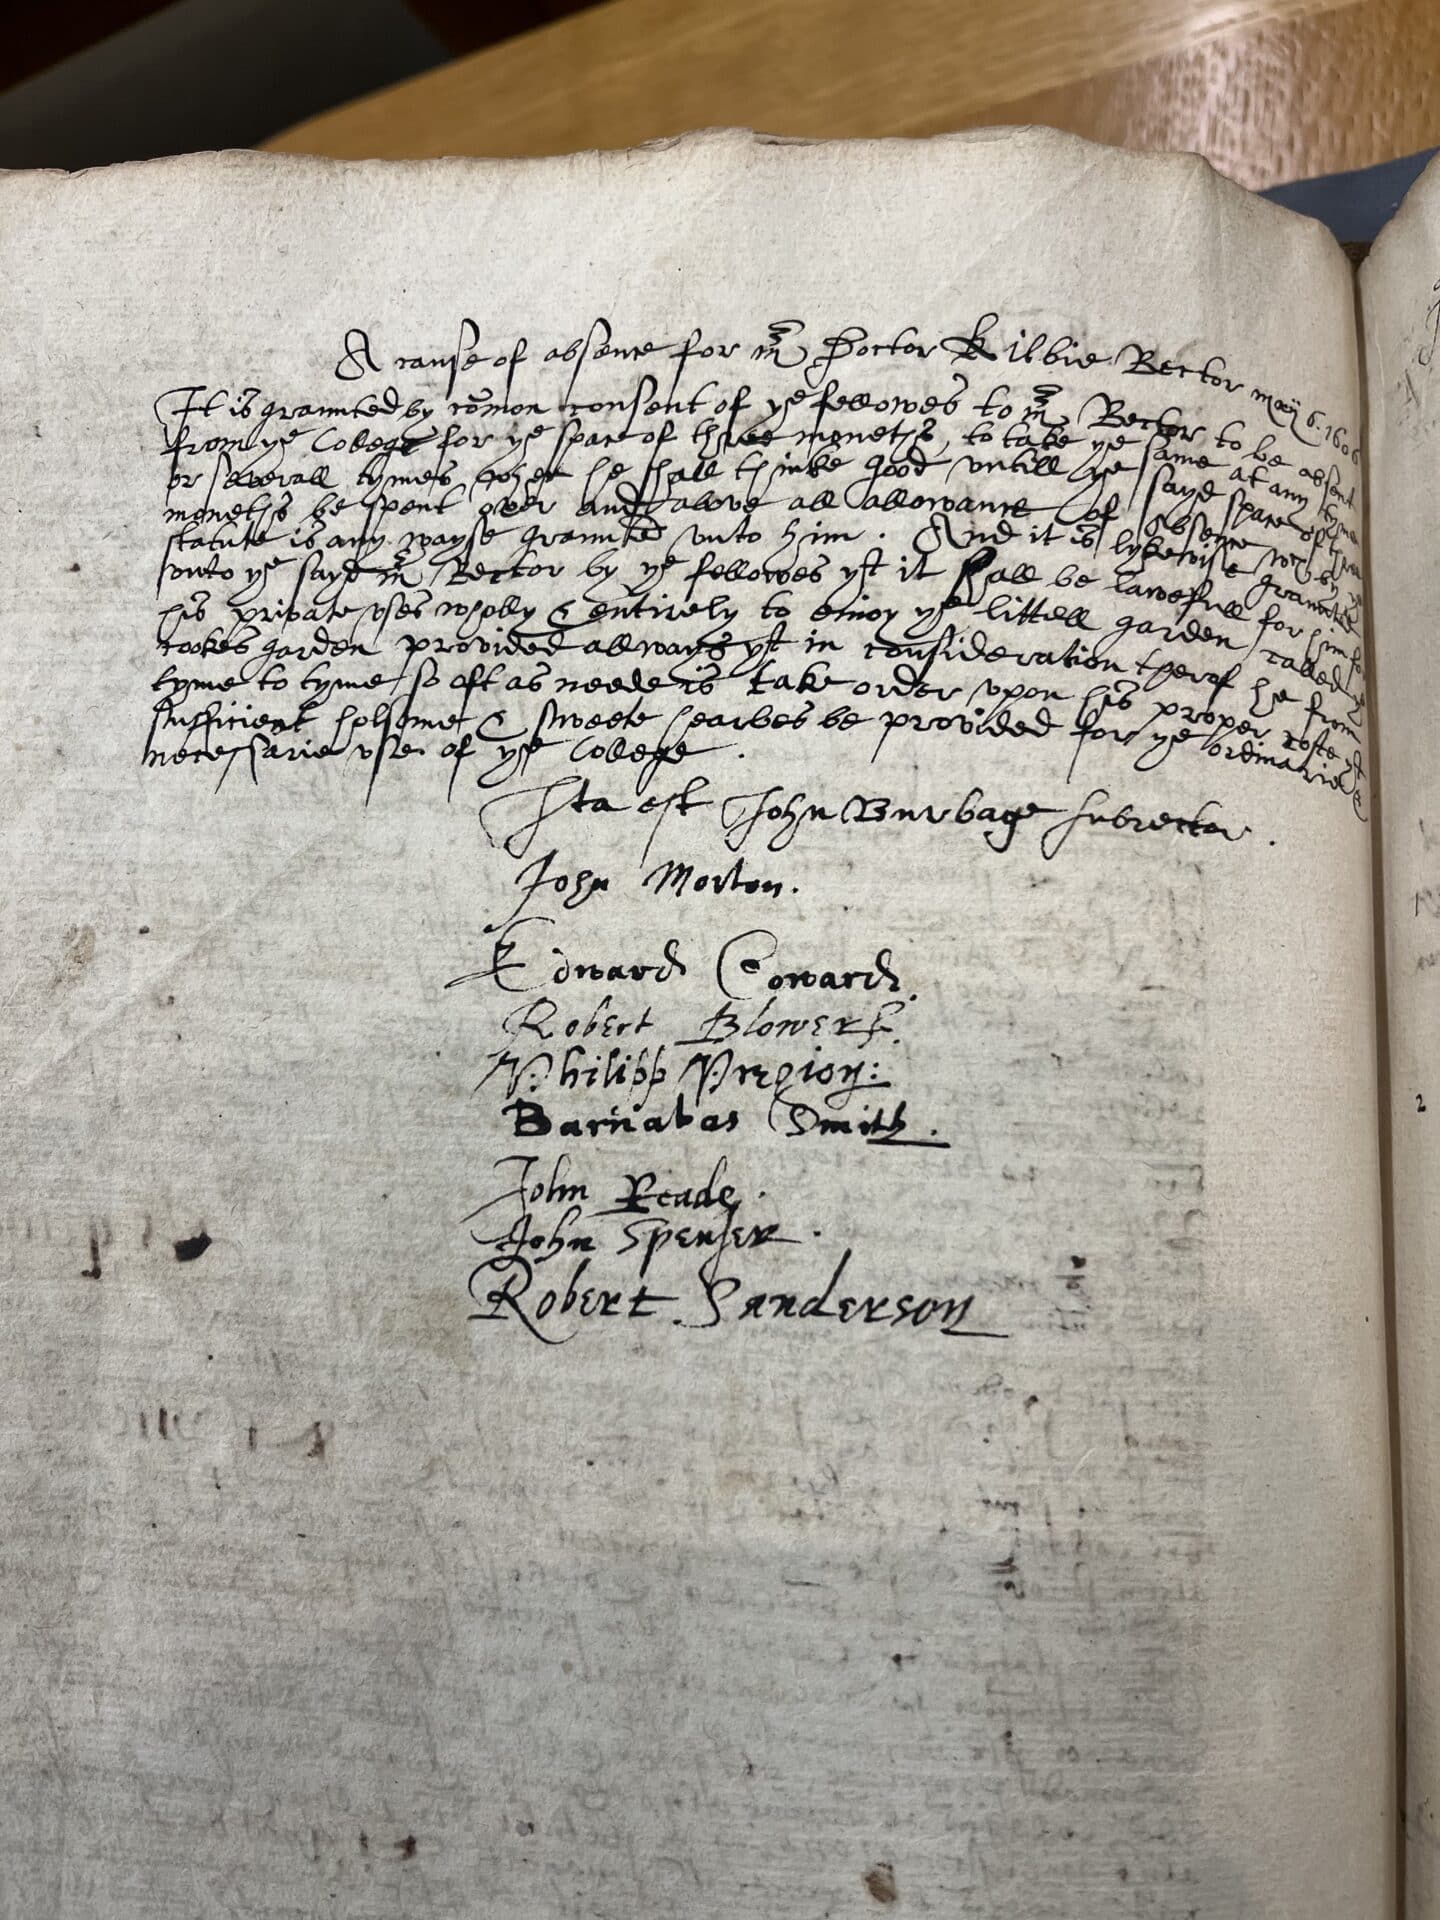 A cause of absence for mr Doctor Kilbie Rector maij 6. 1606
It is graunted by comon consent of ye fellowes to mr Rector to be absent
from ye College for ye space of three moneths, to take ye same at any tyme
or severall tymes when he shall thinke good untill ye sayd space of three
moneths be spent over and above all allowance of absence wch by ye
statute is any wayse graunted unto him. And it is lykewise graunted
unto ye sayd mr Rector by ye fellowes yt it shall be lawefull for him for
his private uses wholly & entirely to enioy ye littell garden called ye
cookes garden provided allways yt in consideration therof he from
tyme to tyme so oft as neede is take order upon his proper coste yt
sufficient holsome & sweete hearbes be provided for ye ordinarie &
necessarie use of ye College.
Ita est John Burbage subrector.
John Morton.
Edward Coward.
Robert Blowers.
Philipp Pregion:
Barnabas Smith.
John Reade.
John Spenser.
Robert Sanderson
2